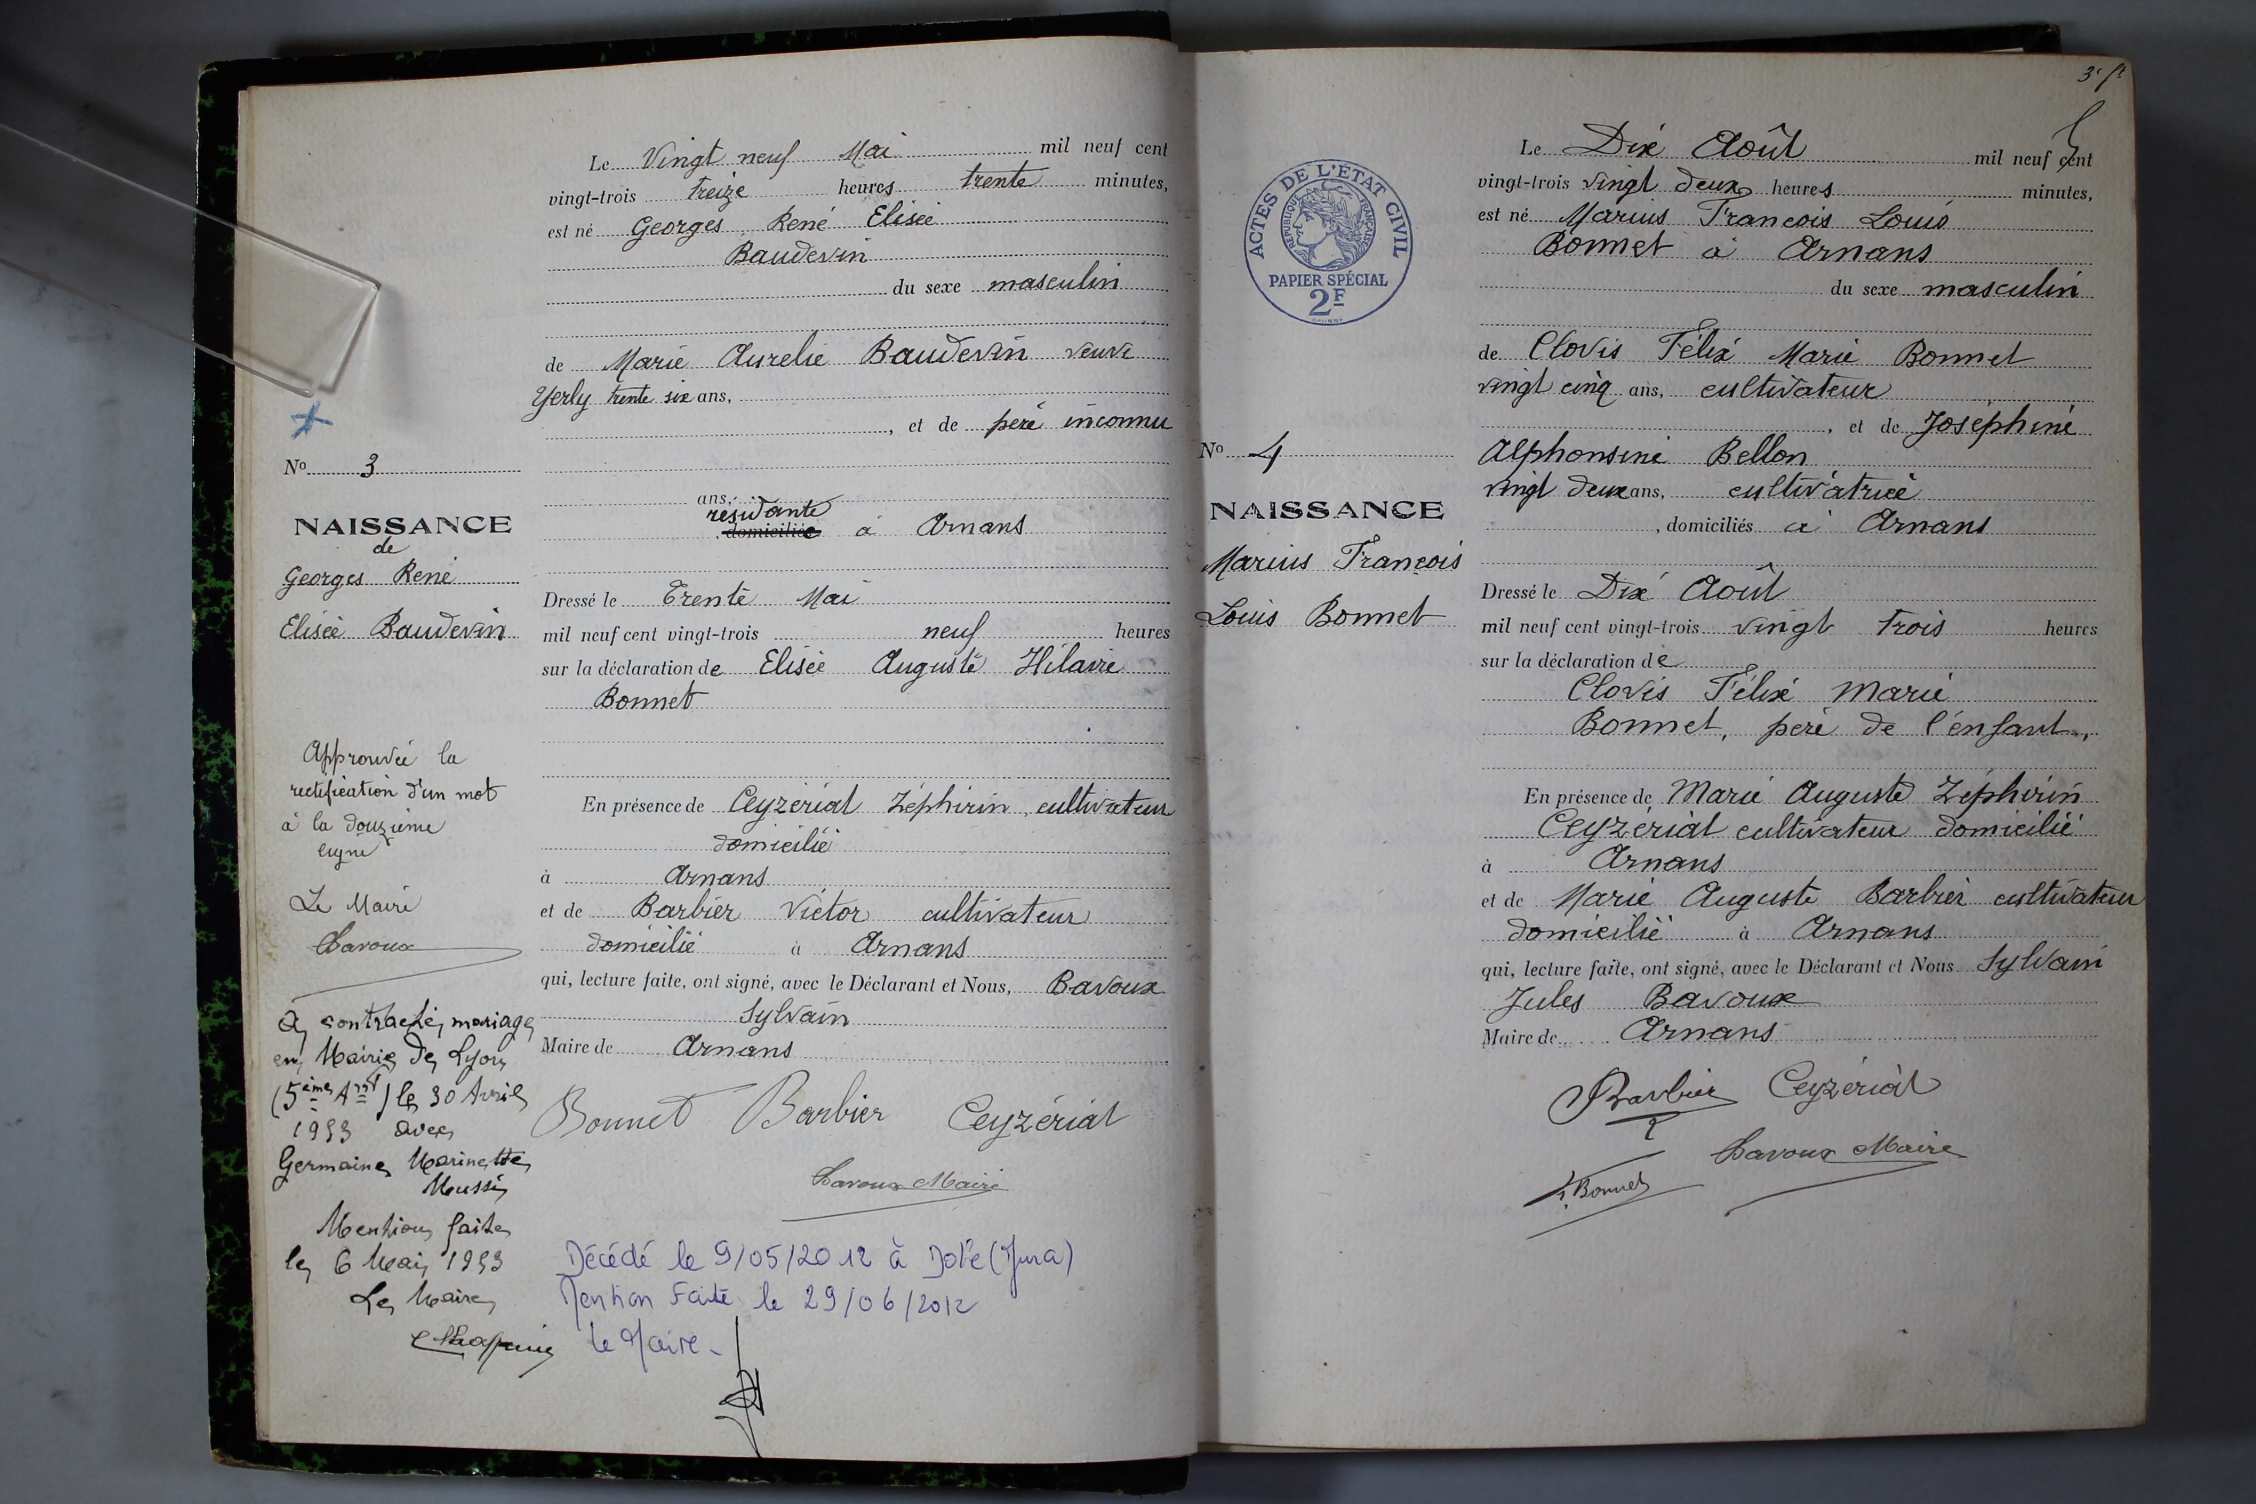 Le Vingt neuf Mai mil neuf cent
vingt-trois treize heures trente minutes,
est né Georges René Elisée
Baudevin
du sexe masculin
de Marie Aurelie Baudevin veuve
Yerly trente six ans,
, et de père inconnu
ans,
résidante
, domiciliée à Arnans
Dressé le Trente Mai
mil neuf cent vingt-trois neuf heures
sur la déclaration de Elisée Auguste Hilaire
Bonnet
En présence de Ceyzériat Zéphirin, cultivateur
domicilié
à Arnans
et de Barbier Victor cultivateur
domicilié à Arnans
qui, lecture faite, ont signé, avec le Déclarant et Nous, Bavoux
Sylvain
Maire de Arnans
Bonnet Barbier Ceyzériat
Bavoux Maire
Décédé le 9/05/2012 à Dole (Jura)
Mention Faite le 29/06/2012
le Maire
No 3
NAISSANCE
de
Georges René
Elisée Baudevin
Approuvée la
rectification d'un mot
à la douzième
ligne
Le Maire
Bavoux
A contracté mariage
en Mairie de Lyon
(5ème Arrt) le 30 Avril
1953 avec
Germaine Marinette
Mussi
Mention faite
le 6 Mai 1953
Le Maire
3e ft
Le Dix Août mil neuf cent
vingt-trois vingt deux heures minutes,
est né Marius François Louis
Bonnet à Arnans
du sexe masculin
de Clovis Félix Marie Bonnet
vingt cinq ans, cultivateur
, et de Joséphine
Alphonsine Bellon
vingt deux ans, cultivatrice
, domiciliés à Arnans
Dressé le Dix Août
mil neuf cent vingt-trois vingt trois heures
sur la déclaration de
Clovis Félix Marie
Bonnet, père de l'enfant,
En présence de Marie Auguste Zéphirin
Ceyzériat cultivateur domicilié
à Arnans
et de Marie Auguste Barbier cultivateur
domicilié à Arnans
qui, lecture faite, ont signé, avec le Déclarant et Nous Sylvain
Jules Bavoux
Maire de Arnans
Barbier Ceyzériat
Bavoux Maire
Bonnet
ACTES DE L'ÉTAT CIVIL
RÉPUBLIQUE FRANÇAISE
PAPIER SPÉCIAL
2F
No 4
NAISSANCE
Marius François
Louis Bonnet